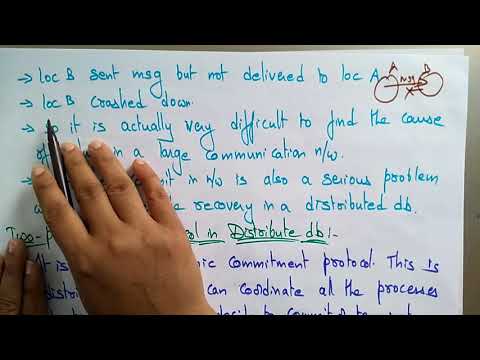 → loc B sent msg but not delivered to loc A
A B
msg
→ loc B crashed down.
→ it is actually very difficult to find the cause
in a large communication n/w.
in n/w is also a serious problem
recovery in a distributed db.
Two- in Distribute db:-
It is commitment protocol. This is
can coordinate all the processes